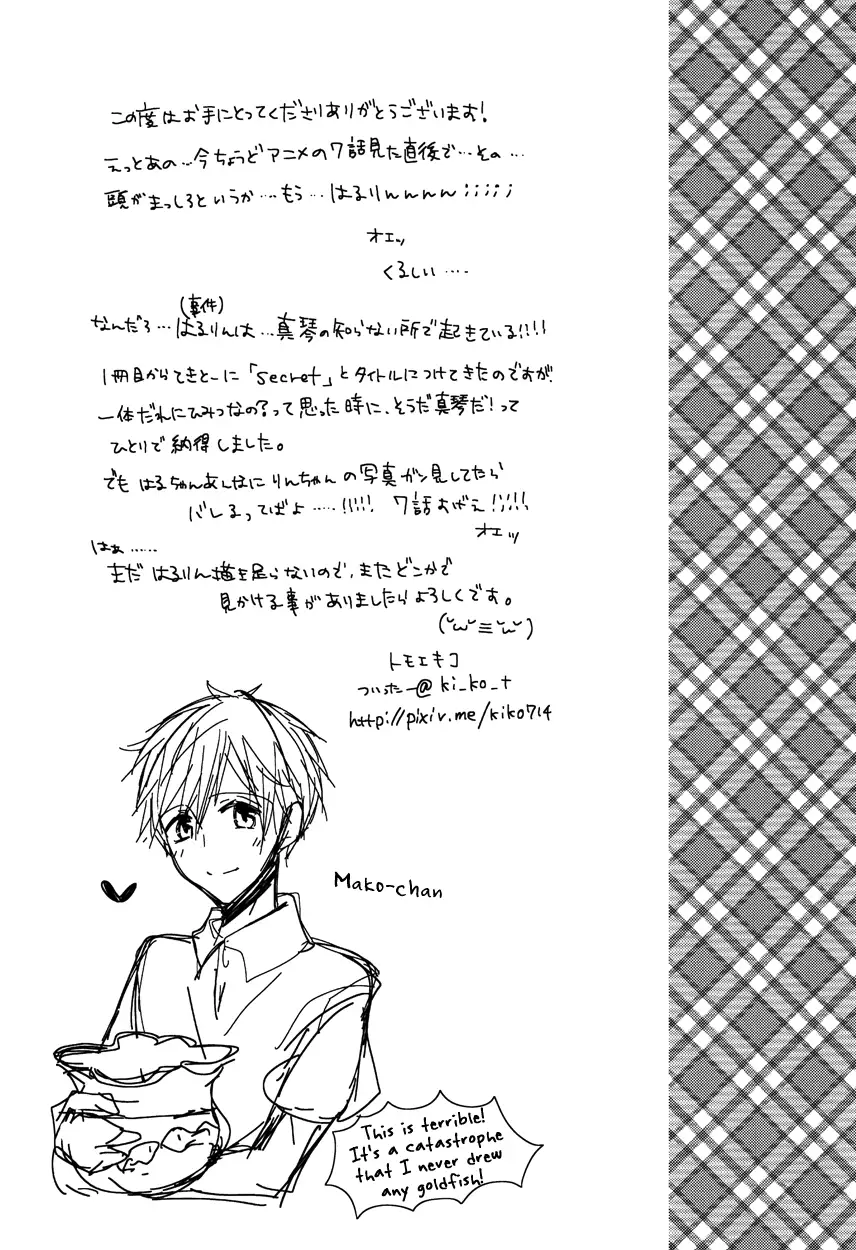 この度はお手にとってくださりありがとうございます!
えっとあの…今ちょうどアニメの7話見た直後で…その…
頭がまっしろというか…もう…はるりんんんん;;;;;
オエッ
くるしい….
(事件)
なんだろ…はるりんは…真琴の知らない所で起きている!!!!
1冊目からてきとーに「secret」とタイトルにつけてきたのですが、
一体だれにひみつなの?って思った時に、そうだ真琴だ!って
ひとりで納得しました。
でも はるちゃんあんなに りんちゃんの写真ガン見してたら
バレるってばよ……!!!!! 7話おがえ!!!!!
オエッ
はぁ……
まだ はるりん描き足らないので、またどこかで
見かける事がありましたらよろしくです。
(˘ω˘≡˘ω˘)
トモエキコ
ついったー@ki_ko_t
http://pixiv.me/kiko714
Mako-chan
This is terrible!
It's a catastrophe
that I never drew
any goldfish!